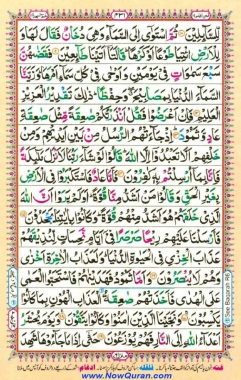 لِّلسَّآئِلِيْنَ ثُمَّ اسْتَوٰٓى اِلَى السَّمَآءِ وَهِىَ دُخَانٌ فَقَالَ لَهَا وَ
لِلْاَرْضِ ائْتِيَا طَوْعًا اَوْ كَرْهًا قَالَتَآ اَتَيْنَا طَآئِعِيْنَ فَقَضٰهُنَّ
سَبْعَ سَمٰوَاتٍ فِىْ يَوْمَيْنِ وَاَوْحٰى فِىْ كُلِّ سَمَآءٍ اَمْرَهَا وَزَيَّنَّا
السَّمَآءَ الدُّنْيَا بِمَصَابِيْحَ وَحِفْظًا ذٰلِكَ تَقْدِيْرُ الْعَزِيْزِ
الْعَلِيْمِ فَاِنْ اَعْرَضُوْا فَقُلْ اَنْذَرْتُكُمْ صٰعِقَةً مِّثْلَ صٰعِقَةِ
عَادٍ وَّثَمُوْدَ اِذْ جَآءَتْهُمُ الرُّسُلُ مِنْۢ بَيْنِ اَيْدِيْهِمْ وَمِنْ
خَلْفِهِمْ اَلَّا تَعْبُدُوْٓا اِلَّا اللّٰهَ قَالُوْا لَوْ شَآءَ رَبُّنَا لَاَنْزَلَ مَلٰٓئِكَةً
فَاِنَّا بِمَآ اُرْسِلْتُمْ بِهٖ كٰفِرُوْنَ فَاَمَّا عَادٌ فَاسْتَكْبَرُوْا فِى الْاَرْضِ
بِغَيْرِ الْحَقِّ وَقَالُوْا مَنْ اَشَدُّ مِنَّا قُوَّةً اَوَلَمْ يَرَوْا اَنَّ اللّٰهَ
الَّذِىْ خَلَقَهُمْ هُوَ اَشَدُّ مِنْهُمْ قُوَّةً وَكَانُوْا بِاٰيٰتِنَا يَجْحَدُوْنَ
فَاَرْسَلْنَا عَلَيْهِمْ رِيْحًا صَرْصَرًا فِىْٓ اَيَّامٍ نَّحِسَاتٍ لِّنُذِيْقَهُمْ
عَذَابَ الْخِزْىِ فِى الْحَيٰوةِ الدُّنْيَا وَلَعَذَابُ الْاٰخِرَةِ اَخْزٰى
وَهُمْ لَا يُنْصَرُوْنَ وَاَمَّا ثَمُوْدُ فَهَدَيْنٰهُمْ فَاسْتَحَبُّوا الْعَمٰى
عَلَى الْهُدٰى فَاَخَذَتْهُمْ صٰعِقَةُ الْعَذَابِ الْهُوْنِ بِمَا كَانُوْا
يَكْسِبُوْنَ وَنَجَّيْنَا الَّذِيْنَ اٰمَنُوْا وَكَانُوْا يَتَّقُوْنَ وَيَوْمَ يُحْشَرُ
اَعْدَآءُ اللّٰهِ اِلَى النَّارِ فَهُمْ يُوْزَعُوْنَ حَتّٰٓى اِذَا مَا جَآءُوْهَا شَهِدَ
www.NowQuran.com